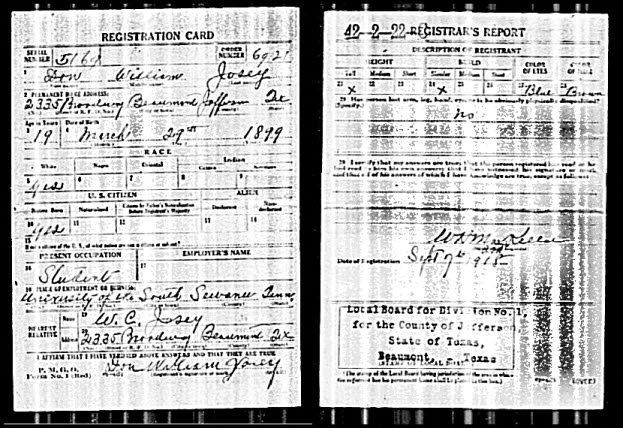 REGISTRATION CARD
SERIAL NUMBER
ORDER NUMBER
Don William Josey
2335 Broadway Beaumont Jefferson Tex
Age in Years
Date of Birth
19 March 29 1899
RACE
White
Negro
Oriental
Indian
yes
U. S. CITIZEN
ALIEN
Native Born
Naturalized
Citizen by Father's Naturalization Before Registrant's Majority
Declarant
Non-declarant
yes
PRESENT OCCUPATION
EMPLOYER'S NAME
Student
PLACE OF EMPLOYMENT OR BUSINESS
University of the South Sewanee Tenn
NEAREST RELATIVE
Name
W. C. Josey
Address
2335 Broadway Beaumont Tex
I AFFIRM THAT I HAVE VERIFIED ABOVE ANSWERS AND THAT THEY ARE TRUE
P. M. G. O.
Form No. 1 (Red)
Don William Josey
42-2-22-C
REGISTRAR'S REPORT
DESCRIPTION OF REGISTRANT
HEIGHT
BUILD
COLOR OF EYES
COLOR OF HAIR
Tall
Medium
Short
Slender
Medium
Stout
x
x
Blue
Brown
29 Has person lost arm, leg, hand, eye, or is he obviously physically disqualified?
(Specify.)
No
30 I certify that my answers are true; that the person registered has read or has had read to him his own answers; that I have witnessed his signature or mark, and that all of his answers of which I have knowledge are true, except as follows:
Date of Registration Sept 7th 1918
Local Board for Division No. 1,
for the County of Jefferson
State of Texas,
Beaumont, Texas
(The stamp of the Local Board having jurisdiction of the area in which the registrant has his permanent home shall be placed in this box.)
(OVER)